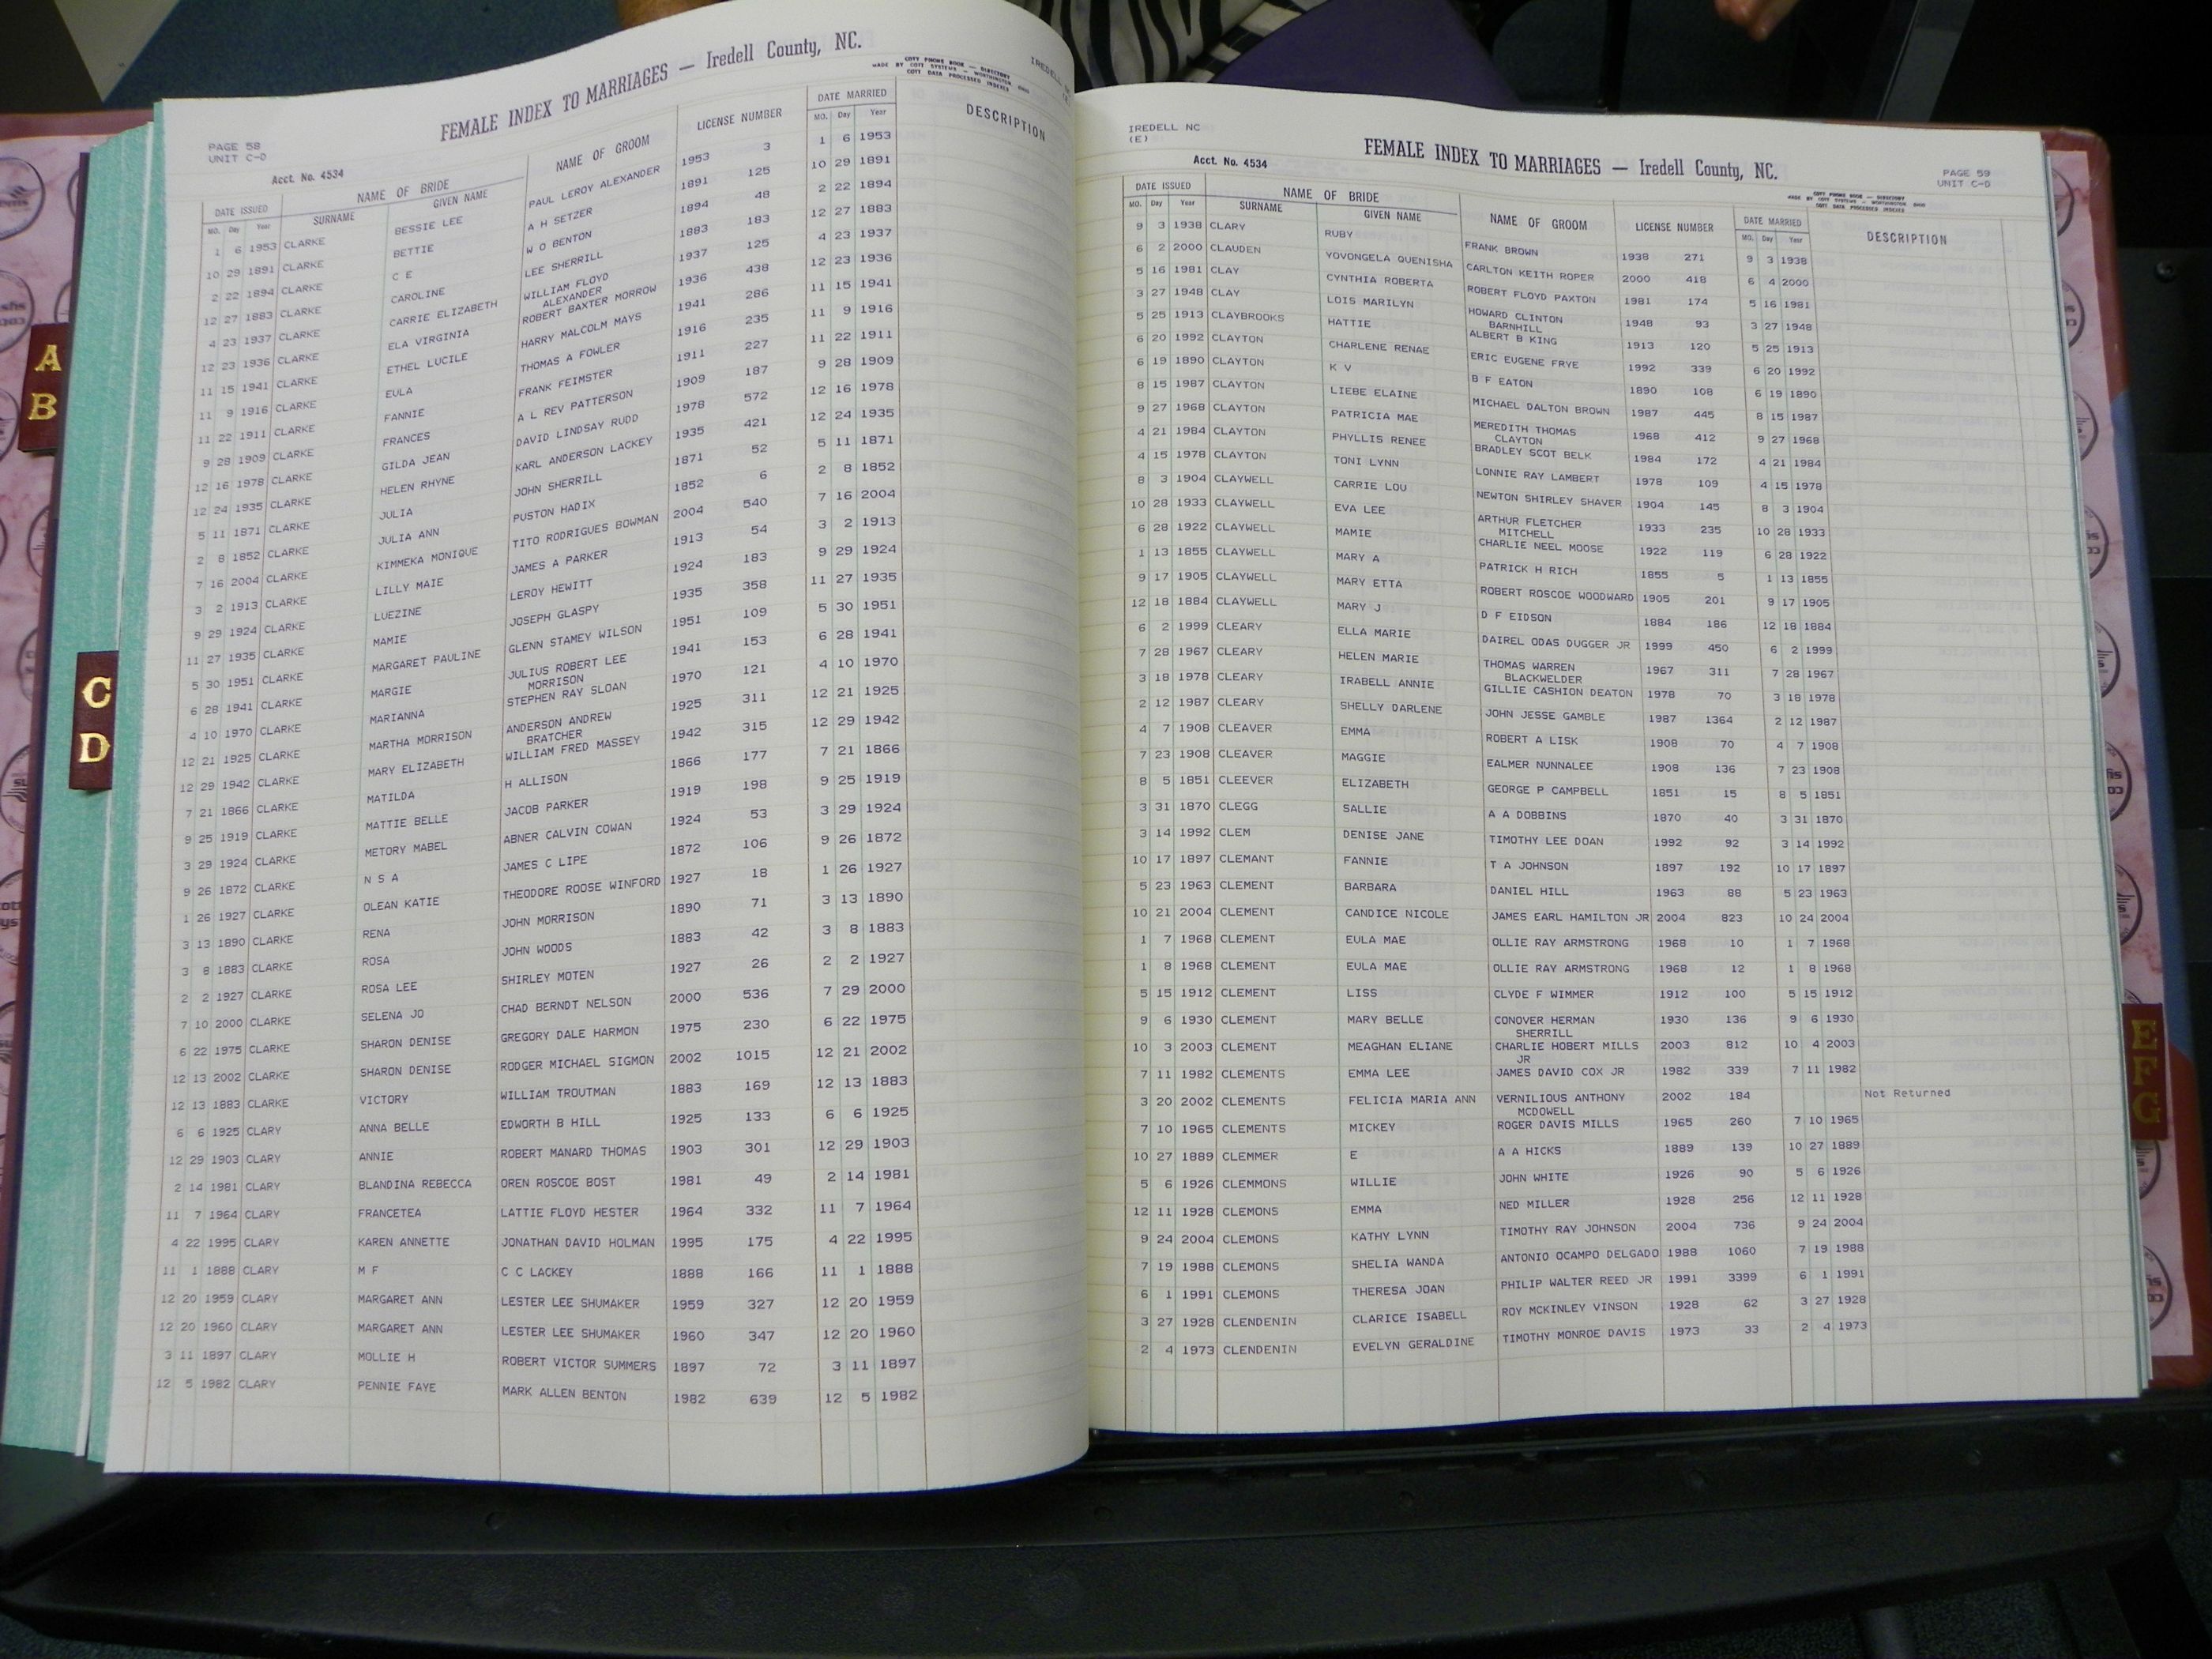 PAGE 58
UNIT C-D
FEMALE INDEX TO MARRIAGES — Iredell County, NC.
COTT PHONE BOOK — DIRECTORY
MADE BY COTT SYSTEMS — WORTHINGTON
COTT DATA PROCESSED INDEXES
IREDELL
Acct. No. 4534
DATE ISSUED NAME OF BRIDE NAME OF GROOM LICENSE NUMBER DATE MARRIED DESCRIPTION
MO. Day Year SURNAME GIVEN NAME MO. Day Year
1 6 1953 CLARKE BESSIE LEE PAUL LEROY ALEXANDER 1953 3 1 6 1953
10 29 1891 CLARKE BETTIE A H SETZER 1891 125 10 29 1891
2 22 1894 CLARKE C E W O BENTON 1894 48 2 22 1894
12 27 1883 CLARKE CAROLINE LEE SHERRILL 1883 183 12 27 1883
4 23 1937 CLARKE CARRIE ELIZABETH WILLIAM FLOYD 1937 125 4 23 1937
ALEXANDER
12 23 1936 CLARKE ELA VIRGINIA ROBERT BAXTER MORROW 1936 438 12 23 1936
11 15 1941 CLARKE ETHEL LUCILE HARRY MALCOLM MAYS 1941 286 11 15 1941
11 9 1916 CLARKE EULA THOMAS A FOWLER 1916 235 11 9 1916
11 22 1911 CLARKE FANNIE FRANK FEIMSTER 1911 227 11 22 1911
9 28 1909 CLARKE FRANCES A L REV PATTERSON 1909 187 9 28 1909
12 16 1978 CLARKE GILDA JEAN DAVID LINDSAY RUDD 1978 572 12 16 1978
12 24 1935 CLARKE HELEN RHYNE KARL ANDERSON LACKEY 1935 421 12 24 1935
5 11 1871 CLARKE JULIA JOHN SHERRILL 1871 52 5 11 1871
2 8 1852 CLARKE JULIA ANN PUSTON HADIX 1852 6 2 8 1852
7 16 2004 CLARKE KIMMEKA MONIQUE TITO RODRIGUES BOWMAN 2004 540 7 16 2004
3 2 1913 CLARKE LILLY MAIE JAMES A PARKER 1913 54 3 2 1913
9 29 1924 CLARKE LUEZINE LEROY HEWITT 1924 183 9 29 1924
11 27 1935 CLARKE MAMIE JOSEPH GLASPY 1935 358 11 27 1935
5 30 1951 CLARKE MARGARET PAULINE GLENN STAMEY WILSON 1951 109 5 30 1951
6 28 1941 CLARKE MARGIE JULIUS ROBERT LEE 1941 153 6 28 1941
MORRISON
4 10 1970 CLARKE MARIANNA STEPHEN RAY SLOAN 1970 121 4 10 1970
12 21 1925 CLARKE MARTHA MORRISON ANDERSON ANDREW 1925 311 12 21 1925
BRATCHER
12 29 1942 CLARKE MARY ELIZABETH WILLIAM FRED MASSEY 1942 315 12 29 1942
7 21 1866 CLARKE MATILDA H ALLISON 1866 177 7 21 1866
9 25 1919 CLARKE MATTIE BELLE JACOB PARKER 1919 198 9 25 1919
3 29 1924 CLARKE METORY MABEL ABNER CALVIN COWAN 1924 53 3 29 1924
9 26 1872 CLARKE N S A JAMES C LIPE 1872 106 9 26 1872
1 26 1927 CLARKE OLEAN KATIE THEODORE ROOSE WINFORD 1927 18 1 26 1927
3 13 1890 CLARKE RENA JOHN MORRISON 1890 71 3 13 1890
3 8 1883 CLARKE ROSA JOHN WOODS 1883 42 3 8 1883
2 2 1927 CLARKE ROSA LEE SHIRLEY MOTEN 1927 26 2 2 1927
7 10 2000 CLARKE SELENA JO CHAD BERNDT NELSON 2000 536 7 29 2000
6 22 1975 CLARKE SHARON DENISE GREGORY DALE HARMON 1975 230 6 22 1975
12 13 2002 CLARKE SHARON DENISE RODGER MICHAEL SIGMON 2002 1015 12 21 2002
12 13 1883 CLARKE VICTORY WILLIAM TROUTMAN 1883 169 12 13 1883
6 6 1925 CLARY ANNA BELLE EDWORTH B HILL 1925 133 6 6 1925
12 29 1903 CLARY ANNIE ROBERT MANARD THOMAS 1903 301 12 29 1903
2 14 1981 CLARY BLANDINA REBECCA OREN ROSCOE BOST 1981 49 2 14 1981
11 7 1964 CLARY FRANCETEA LATTIE FLOYD HESTER 1964 332 11 7 1964
4 22 1995 CLARY KAREN ANNETTE JONATHAN DAVID HOLMAN 1995 175 4 22 1995
11 1 1888 CLARY M F C C LACKEY 1888 166 11 1 1888
12 20 1959 CLARY MARGARET ANN LESTER LEE SHUMAKER 1959 327 12 20 1959
12 20 1960 CLARY MARGARET ANN LESTER LEE SHUMAKER 1960 347 12 20 1960
3 11 1897 CLARY MOLLIE H ROBERT VICTOR SUMMERS 1897 72 3 11 1897
12 5 1982 CLARY PENNIE FAYE MARK ALLEN BENTON 1982 639 12 5 1982
IREDELL NC
(E)
Acct. No. 4534
FEMALE INDEX TO MARRIAGES — Iredell County, NC.
PAGE 59
UNIT C-D
COTT PHONE BOOK — DIRECTORY
MADE BY COTT SYSTEMS — WORTHINGTON
COTT DATA PROCESSED INDEXES
DATE ISSUED NAME OF BRIDE NAME OF GROOM LICENSE NUMBER DATE MARRIED DESCRIPTION
MO. Day Year SURNAME GIVEN NAME MO. Day Year
9 3 1938 CLARY RUBY FRANK BROWN 1938 271 9 3 1938
6 2 2000 CLAUDEN YOVONGELA QUENISHA CARLTON KEITH ROPER 2000 418 6 4 2000
5 16 1981 CLAY CYNTHIA ROBERTA ROBERT FLOYD PAXTON 1981 174 5 16 1981
3 27 1948 CLAY LOIS MARILYN HOWARD CLINTON 1948 93 3 27 1948
BARNHILL
5 25 1913 CLAYBROOKS HATTIE ALBERT B KING 1913 120 5 25 1913
6 20 1992 CLAYTON CHARLENE RENAE ERIC EUGENE FRYE 1992 339 6 20 1992
6 19 1890 CLAYTON K V B F EATON 1890 108 6 19 1890
8 15 1987 CLAYTON LIEBE ELAINE MICHAEL DALTON BROWN 1987 445 8 15 1987
9 27 1968 CLAYTON PATRICIA MAE MEREDITH THOMAS 1968 412 9 27 1968
CLAYTON
4 21 1984 CLAYTON PHYLLIS RENEE BRADLEY SCOT BELK 1984 172 4 21 1984
4 15 1978 CLAYTON TONI LYNN LONNIE RAY LAMBERT 1978 109 4 15 1978
8 3 1904 CLAYWELL CARRIE LOU NEWTON SHIRLEY SHAVER 1904 145 8 3 1904
10 28 1933 CLAYWELL EVA LEE ARTHUR FLETCHER 1933 235 10 28 1933
MITCHELL
6 28 1922 CLAYWELL MAMIE CHARLIE NEEL MOOSE 1922 119 6 28 1922
1 13 1855 CLAYWELL MARY A PATRICK H RICH 1855 5 1 13 1855
9 17 1905 CLAYWELL MARY ETTA ROBERT ROSCOE WOODWARD 1905 201 9 17 1905
12 18 1884 CLAYWELL MARY J D F EIDSON 1884 186 12 18 1884
6 2 1999 CLEARY ELLA MARIE DAIREL ODAS DUGGER JR 1999 450 6 2 1999
7 28 1967 CLEARY HELEN MARIE THOMAS WARREN 1967 311 7 28 1967
BLACKWELDER
3 18 1978 CLEARY IRABELL ANNIE GILLIE CASHION DEATON 1978 70 3 18 1978
2 12 1987 CLEARY SHELLY DARLENE JOHN JESSE GAMBLE 1987 1364 2 12 1987
4 7 1908 CLEAVER EMMA ROBERT A LISK 1908 70 4 7 1908
7 23 1908 CLEAVER MAGGIE EALMER NUNNALEE 1908 136 7 23 1908
8 5 1851 CLEEVER ELIZABETH GEORGE P CAMPBELL 1851 15 8 5 1851
3 31 1870 CLEGG SALLIE A A DOBBINS 1870 40 3 31 1870
3 14 1992 CLEM DENISE JANE TIMOTHY LEE DOAN 1992 92 3 14 1992
10 17 1897 CLEMANT FANNIE T A JOHNSON 1897 192 10 17 1897
5 23 1963 CLEMENT BARBARA DANIEL HILL 1963 88 5 23 1963
10 21 2004 CLEMENT CANDICE NICOLE JAMES EARL HAMILTON JR 2004 823 10 24 2004
1 7 1968 CLEMENT EULA MAE OLLIE RAY ARMSTRONG 1968 10 1 7 1968
1 8 1968 CLEMENT EULA MAE OLLIE RAY ARMSTRONG 1968 12 1 8 1968
5 15 1912 CLEMENT LISS CLYDE F WIMMER 1912 100 5 15 1912
9 6 1930 CLEMENT MARY BELLE CONOVER HERMAN 1930 136 9 6 1930
SHERRILL
10 3 2003 CLEMENT MEAGHAN ELIANE CHARLIE HOBERT MILLS 2003 812 10 4 2003
JR
7 11 1982 CLEMENTS EMMA LEE JAMES DAVID COX JR 1982 339 7 11 1982
3 20 2002 CLEMENTS FELICIA MARIA ANN VERNILIOUS ANTHONY 2002 184 Not Returned
MCDOWELL
7 10 1965 CLEMENTS MICKEY ROGER DAVIS MILLS 1965 260 7 10 1965
10 27 1889 CLEMMER E A A HICKS 1889 139 10 27 1889
5 6 1926 CLEMMONS WILLIE JOHN WHITE 1926 90 5 6 1926
12 11 1928 CLEMONS EMMA NED MILLER 1928 256 12 11 1928
9 24 2004 CLEMONS KATHY LYNN TIMOTHY RAY JOHNSON 2004 736 9 24 2004
7 19 1988 CLEMONS SHELIA WANDA ANTONIO OCAMPO DELGADO 1988 1060 7 19 1988
6 1 1991 CLEMONS THERESA JOAN PHILIP WALTER REED JR 1991 3399 6 1 1991
3 27 1928 CLENDENIN CLARICE ISABELL ROY MCKINLEY VINSON 1928 62 3 27 1928
2 4 1973 CLENDENIN EVELYN GERALDINE TIMOTHY MONROE DAVIS 1973 33 2 4 1973
A
B
C
D
E
F
G